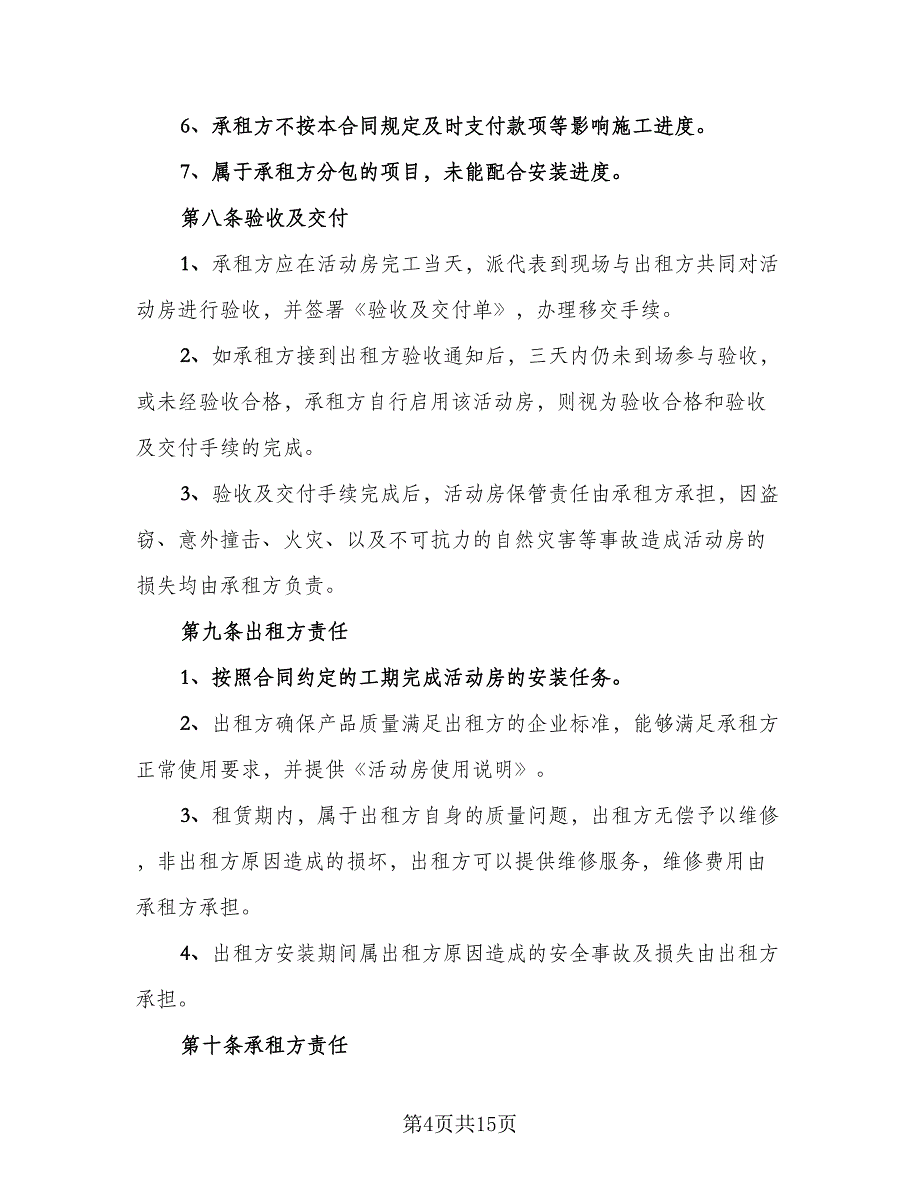 6、承租方不按本合同规定及时支付款项等影响施工进度。
7、属于承租方分包的项目，未能配合安装进度。
第八条验收及交付
1、承租方应在活动房完工当天，派代表到现场与出租方共同对活
动房进行验收，并签署《验收及交付单》，办理移交手续。
2、如承租方接到出租方验收通知后，三天内仍未到场参与验收，
或未经验收合格，承租方自行启用该活动房，则视为验收合格和验收
及交付手续的完成。
3、验收及交付手续完成后，活动房保管责任由承租方承担，因盗
窃、意外撞击、火灾、以及不可抗力的自然灾害等事故造成活动房的
损失均由承租方负责。
第九条出租方责任
1、按照合同约定的工期完成活动房的安装任务。
2、出租方确保产品质量满足出租方的企业标准，能够满足承租方
正常使用要求，并提供《活动房使用说明》。
3、租赁期内，属于出租方自身的质量问题，出租方无偿予以维修
，非出租方原因造成的损坏，出租方可以提供维修服务，维修费用由
承租方承担。
4、出租方安装期间属出租方原因造成的安全事故及损失由出租方
承担。
第十条承租方责任
第4页共15页